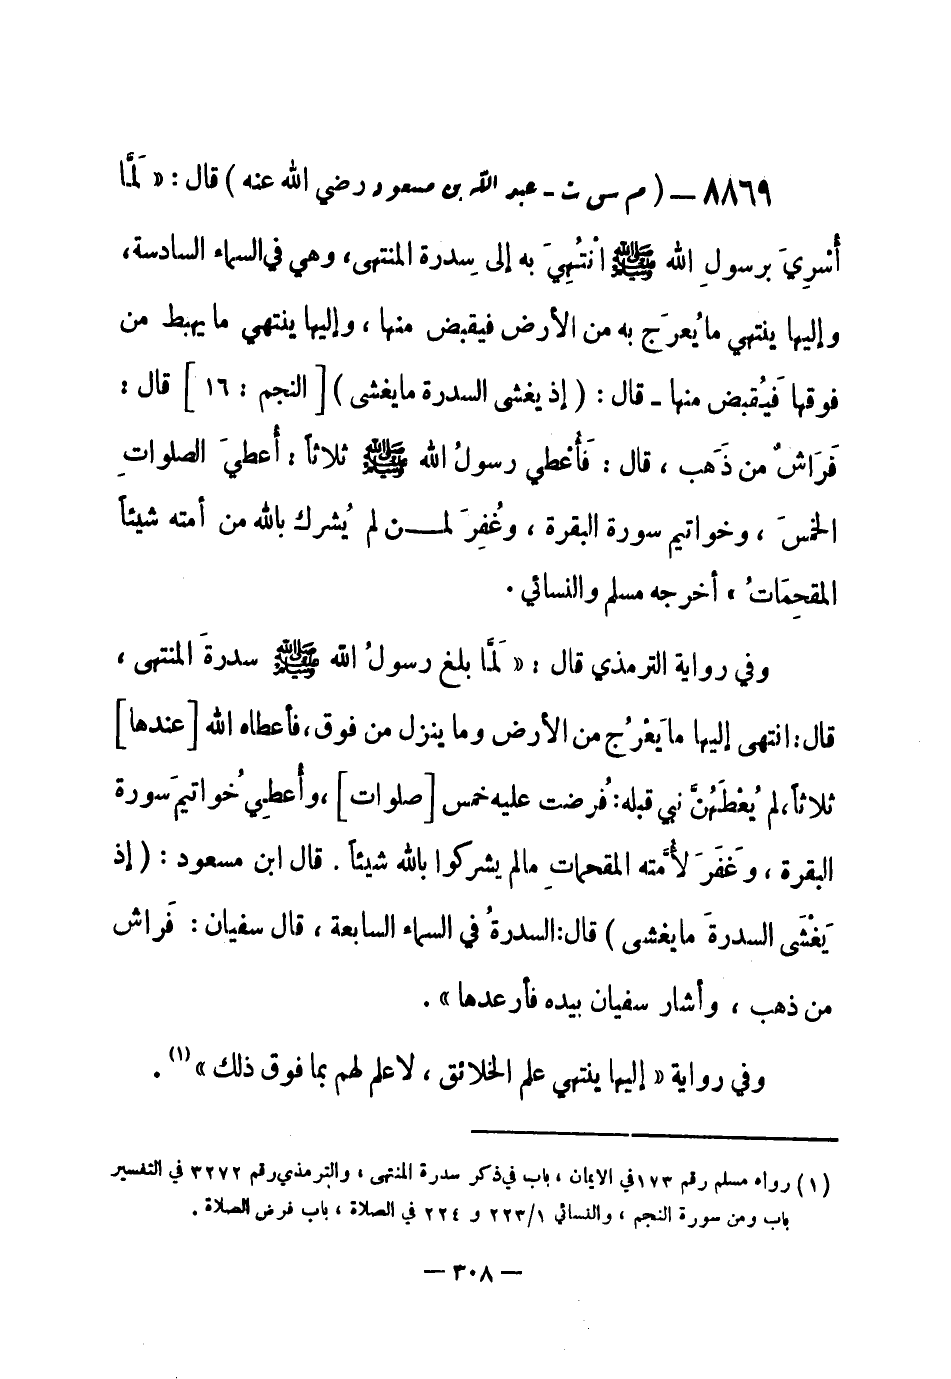 ٨٨٦٩ – ( م س ت - عبد الله بن مسعود رضي الله عنه ) قال : « لَمَّا
أُسْرِيَ برسولِ الله ﷺ انْتُهِيَ به إلى سِدرة المنتهى، وهي في السماء السادسة،
وإليها ينتهي ما يُعرَج به من الأرض فيقبض منها ، وإليها ينتهي ما يهبط من
فوقها فَيُقبض منها ـ قال : ( إذ يغشى السدرة ما يغشى ) [ النجم : ١٦ ] قال :
فَرَاشٌ من ذَهب ، قال : فَأُعْطي رسولُ الله ﷺ ثلاثاً : أُعطيَ الصلواتِ
الخمسَ ، وخواتيم سورة البقرة ، وغُفِرَ لمــن لم يُشرك بالله من أمته شيئاً
المقحِمَاتُ » أخرجه مسلم والنسائي .
وفي رواية الترمذي قال : « لَمَّا بلغ رسولُ الله ﷺ سدرةَ المنتهى ،
قال : انتهى إليها ما يَعْرُج من الأرض وما ينزل من فوق ، فأعطاه الله [ عندها ]
ثلاثاً ، لم يُعْطَهُنَّ نبي قبله : فُرضت عليه خمس [ صلوات ] ، وأُعطِي خُواتيمَ سورة
البقرة ، وغَفَرَ لأُمَّته المقحمات مالم يشركوا بالله شيئاً . قال ابن مسعود : ( إذ
يَغْشَى السدرةَ ما يغشى ) قال : السدرةُ في السماء السابعة ، قال سفيان : فَراش
من ذهب ، وأشار سفيان بيده فأرعدها » .
وفي رواية « إليها ينتهي علم الخلائق ، لا علم لهم بما فوق ذلك » (١) .
(١) رواه مسلم رقم ١٧٣ في الايمان ، باب في ذكر سدرة المنتهى ، والترمذي رقم ٣٢٧٢ في التفسير
باب ومن سورة النجم ، والنسائي ٢٢٣/١ و ٢٢٤ في الصلاة ، باب فرض الصلاة .
— ٣٠٨ —